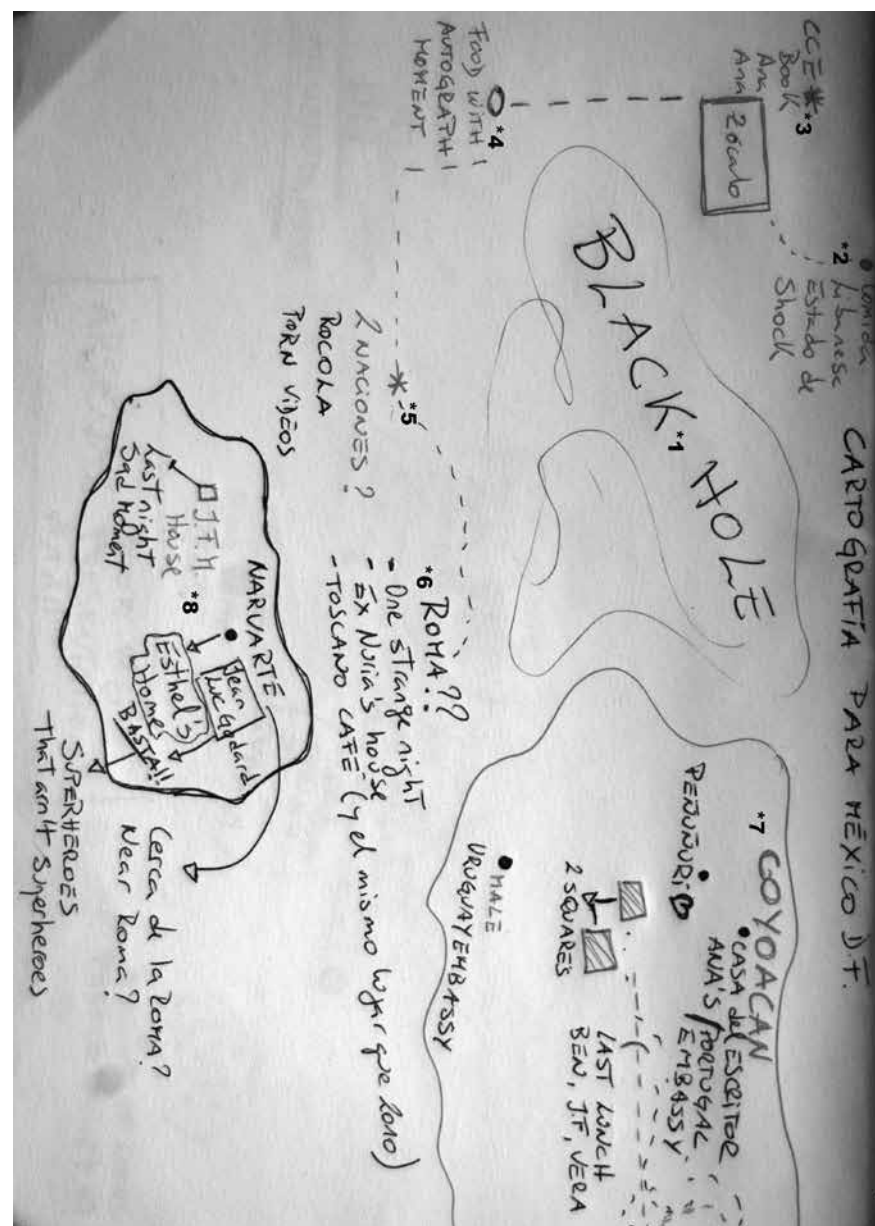 CARTOGRAFÍA PARA MÉXICO D.F.
Comida
*2 Libanesa
Estado de
Shock
CCE * *3
Book
Ana
Ana
Zócalo
*4
FOOD WITH
AUTOGRAPH
MOMENT
BLACK HOLE
*1
*5
2 NACIONES?
ROCOLA
PORN VIDEOS
*6 ROMA??
- One strange night
- EX Nuria's house
- TOSCANO CAFE (y el mismo lugar que Lono)
*7 COYOACAN
CASA del ESCRITOR
ANA'S / PORTUGAL
EMBASSY
2 SQUARES
LAST LUNCH
BEN, J.F, VERA
MALE
URUGUAY EMBASSY
NARVARTE
J.F.M.
House
Last night
Sad Moment
*8
Jean
Luc Godard
Esthel's
Homes
BASTA!!
Cerca de la ROMA?
Near Roma?
SUPERHEROES
That arn't Superheroes